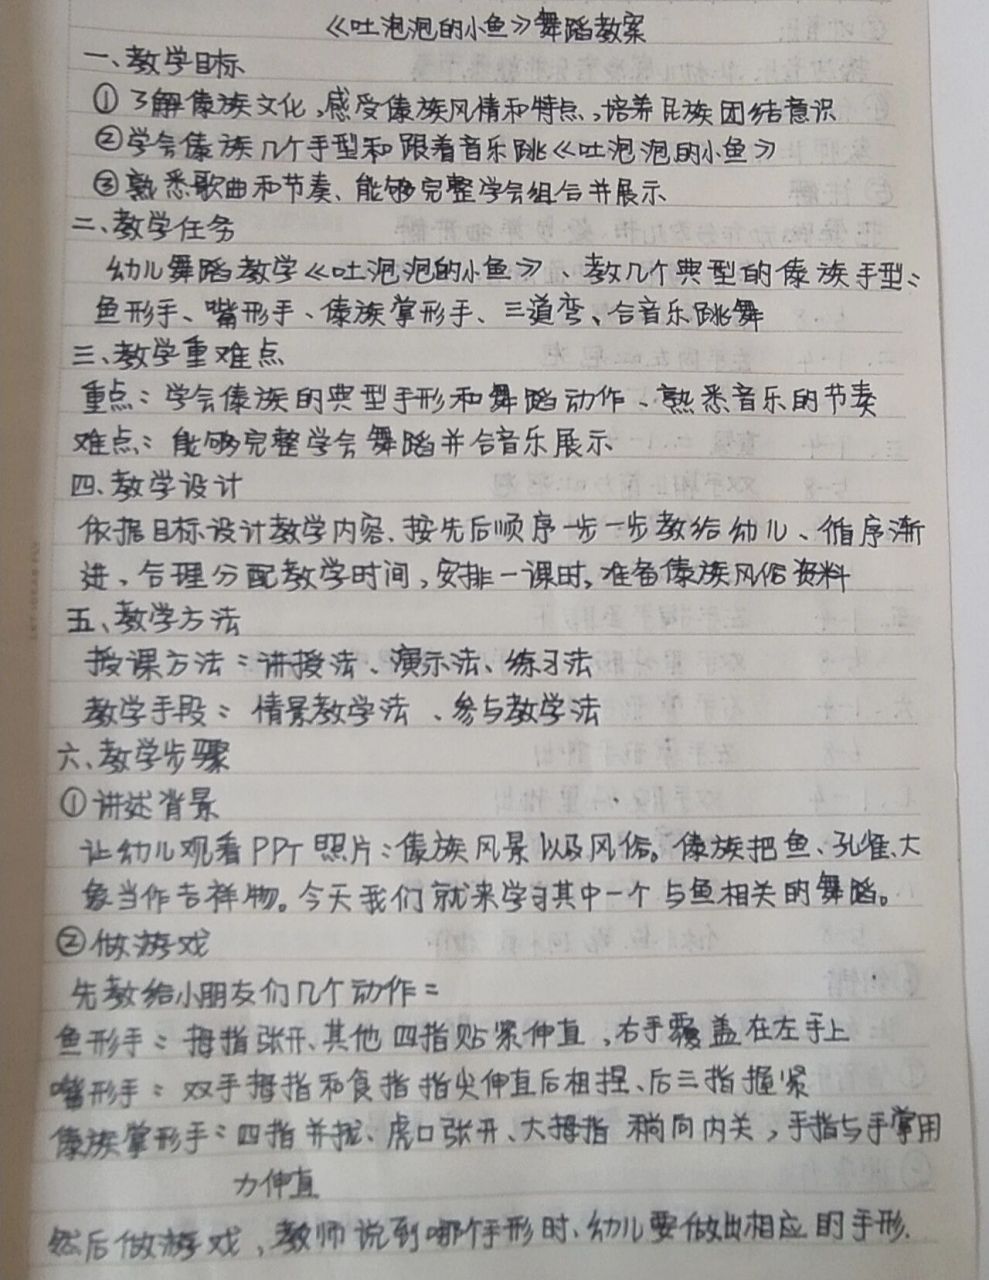 《吐泡泡的小鱼》舞蹈教案
一、教学目标
① 了解傣族文化,感受傣族风情和特点,培养民族团结意识
②学会傣族几个手型和跟着音乐跳《吐泡泡的小鱼》
③熟悉歌曲和节奏、能够完整学会组合并展示
二、教学任务
幼儿舞蹈教学《吐泡泡的小鱼》、教几个典型的傣族手型:
鱼形手、嘴形手、傣族掌形手、三道弯、合音乐跳舞
三、教学重难点
重点:学会傣族的典型手形和舞蹈动作、熟悉音乐的节奏
难点:能够完整学会舞蹈并合音乐展示
四、教学设计
依据目标设计教学内容、按先后顺序一步一步教给幼儿、循序渐
进、合理分配教学时间,安排一课时,准备傣族风俗资料
五、教学方法
授课方法:讲授法、演示法、练习法
教学手段:情景教学法、参与教学法
六、教学步骤
①讲述背景
让幼儿观看PPT照片:傣族风景以及风俗。傣族把鱼、孔雀、大
象当作吉祥物。今天我们就来学习其中一个与鱼相关的舞蹈。
②做游戏
先教给小朋友们几个动作:
鱼形手:拇指张开、其他四指贴紧伸直,右手覆盖在左手上
嘴形手:双手拇指和食指指尖伸直后相捏、后三指握紧
傣族掌形手:四指并拢、虎口张开、大拇指稍向内关,手指与手掌用
力伸直
然后做游戏,教师说到哪个手形时、幼儿要做出相应的手形.